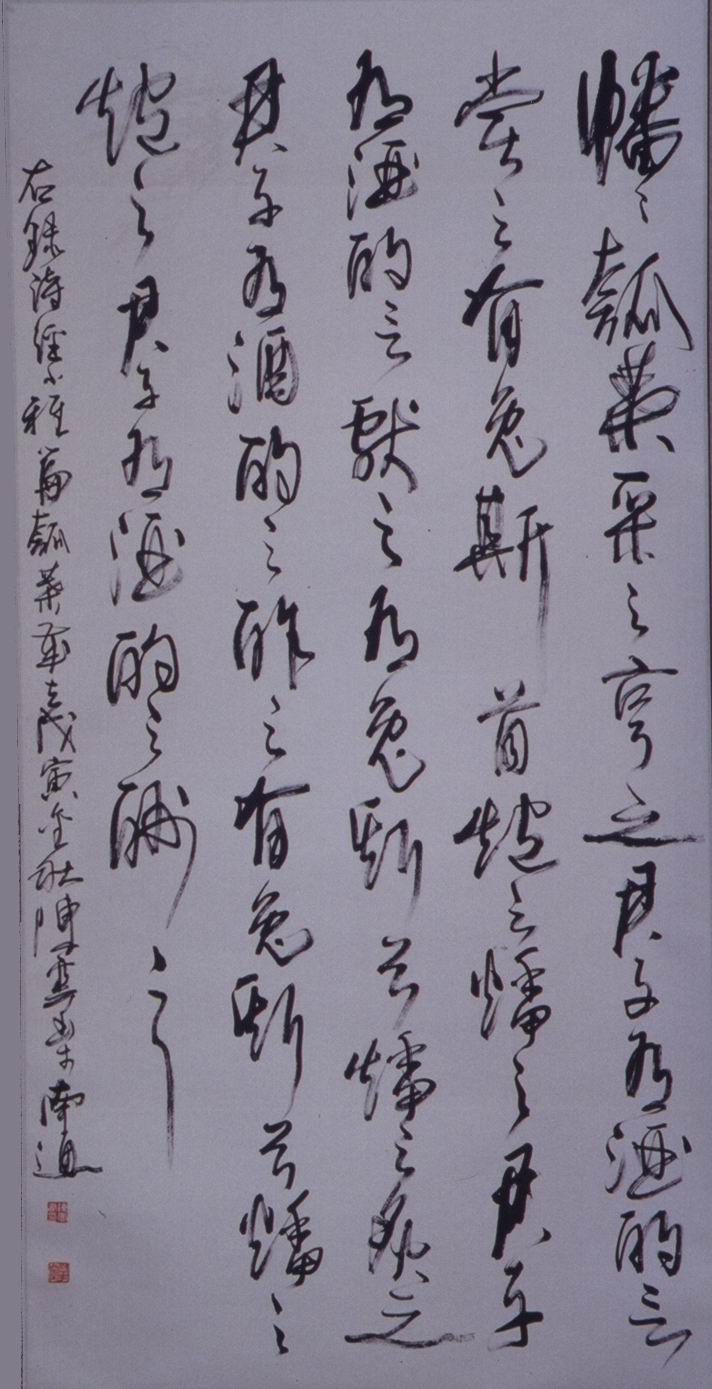 幡〻瓠葉采之亨之君子有酒酌言
嘗之有兔斯首炮之燔之君子
有酒酌言獻之有兔斯首燔之炙之
君子有酒酌言酢之有兔斯首燔之
炮之君子有酒酌言酬之
右錄詩經小雅篇瓠葉章戊寅金秋陳於南通